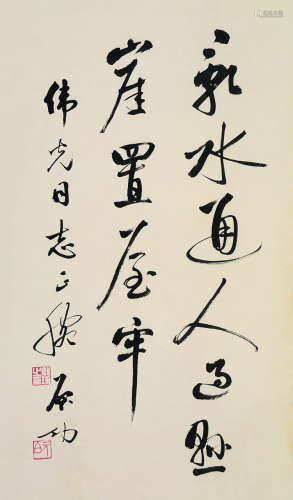 乱水通人过悬
崖置屋牢
伟光同志正腕
启功